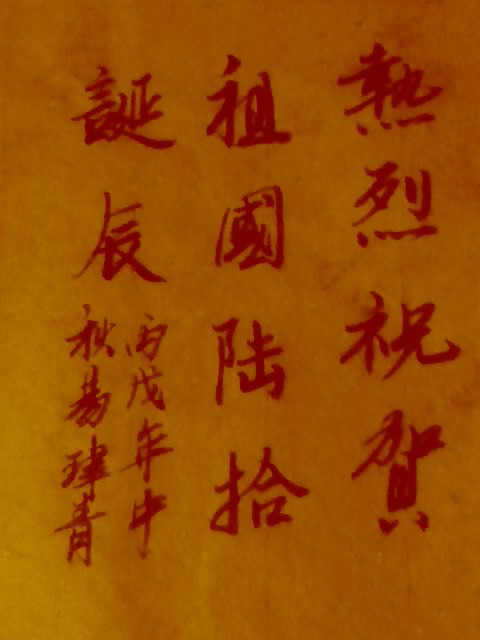 熱烈祝賀
祖國陆拾
誕辰
丙戌年中
秋易瑋青